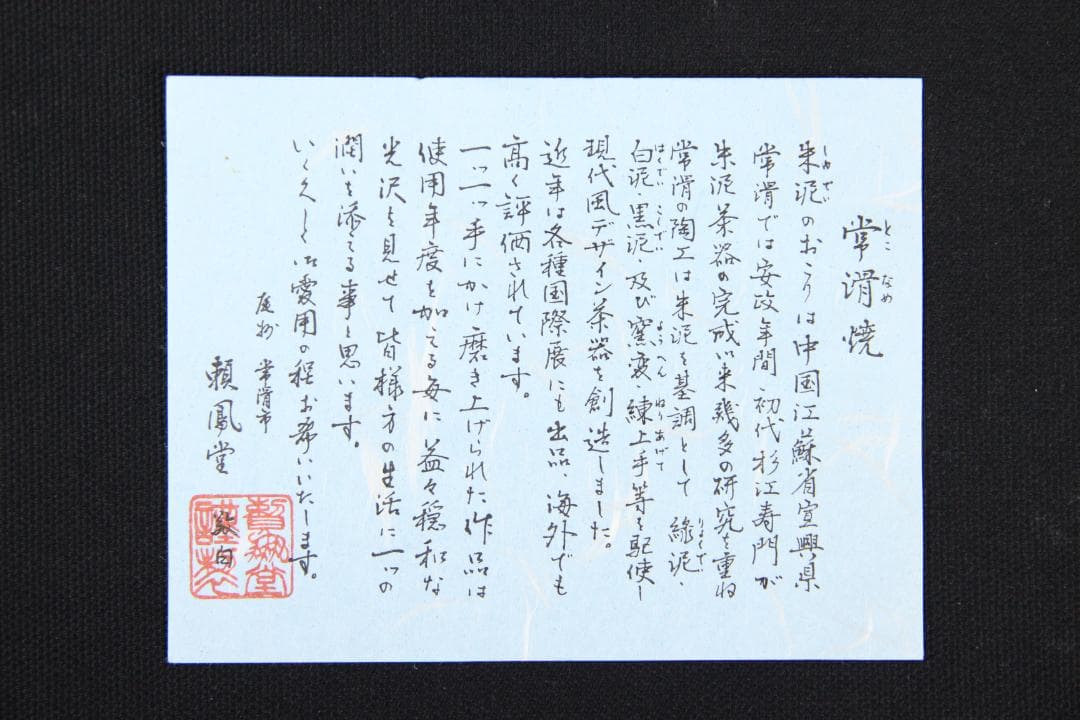 常滑焼
朱泥のおこりは中国江蘇省宜興県
常滑では安政年間・初代杉江寿門が
朱泥茶器の完成以来幾多の研究を重ね
常滑の陶工は朱泥を基調として 緑泥・
白泥・黒泥・及び窯変・練上手等を駆使し
現代風デザイン茶器を創造しました。
近年は各種国際展にも出品、海外でも
高く評価されています。
一つ一つ手にかけ磨き上げられた作品は
使用年度を加える毎に益々穏和な
光沢を見せて皆様方の生活に一つの
潤いを添える事と思います。
いく久しく御愛用の程お希いいたします。
尾州 常滑市
頼鳳堂
敬白